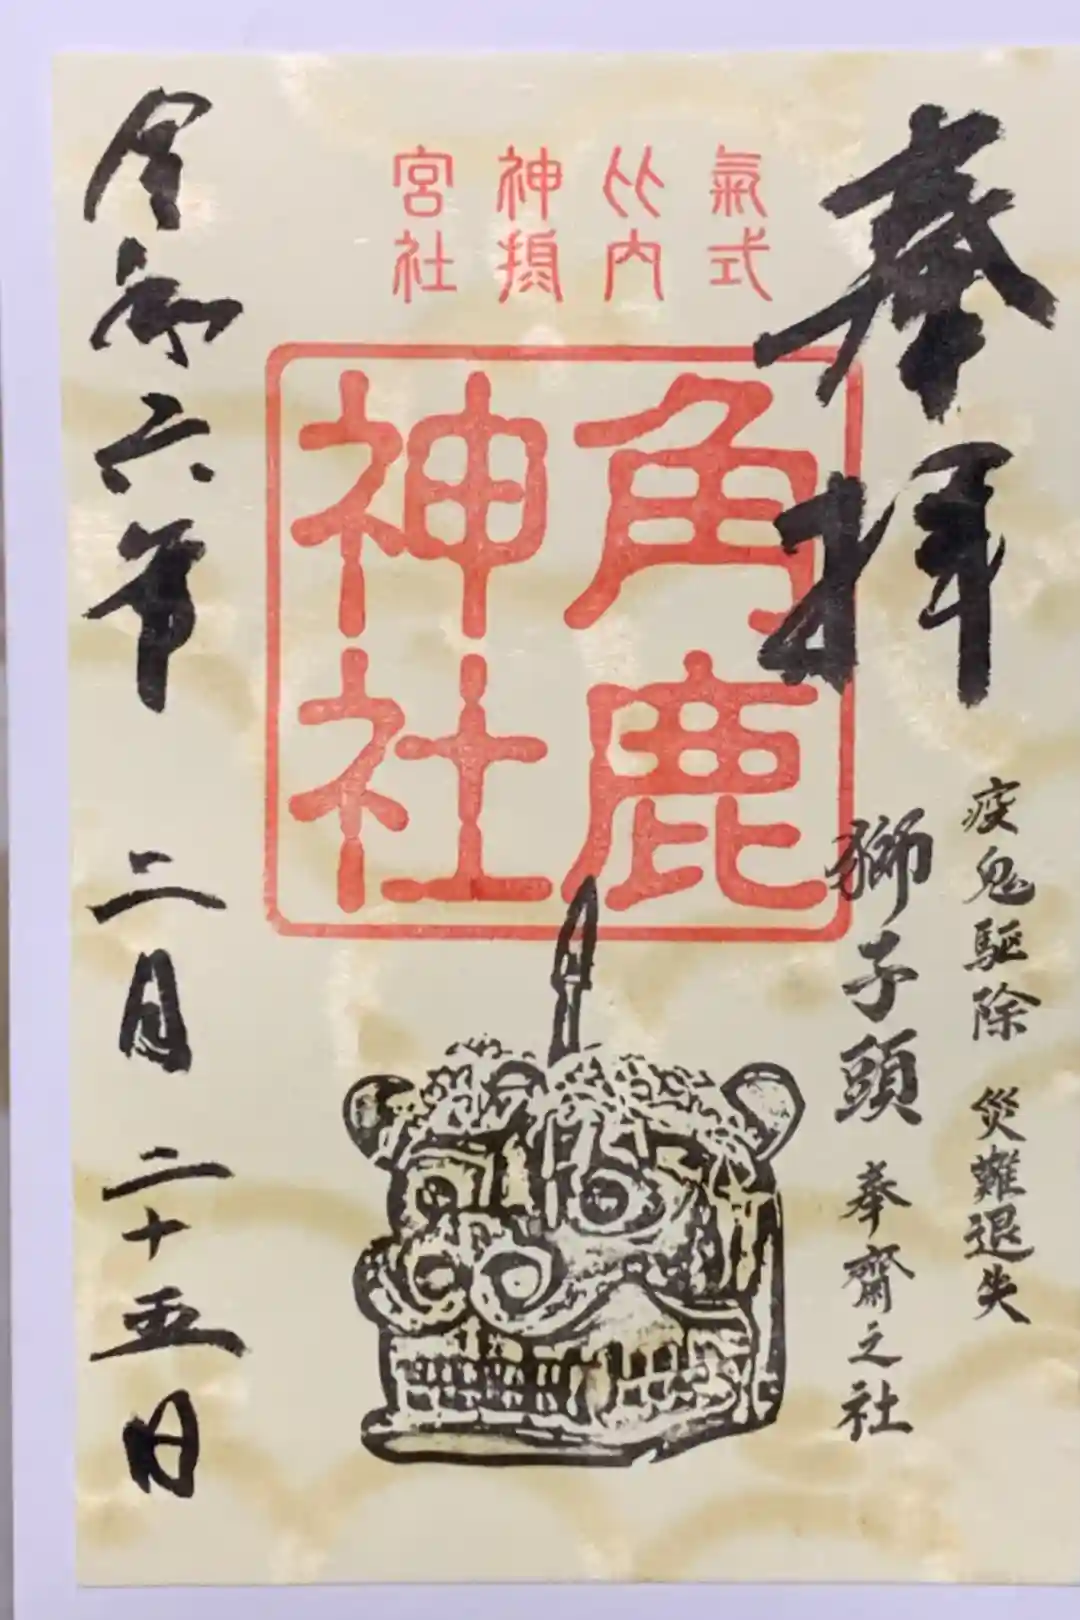 奉拝
疫鬼駆除 災難退失
獅子頭 奉齋之社
氣比神宮
式内摂社
角鹿
神社
令和六年 二月 二十五日